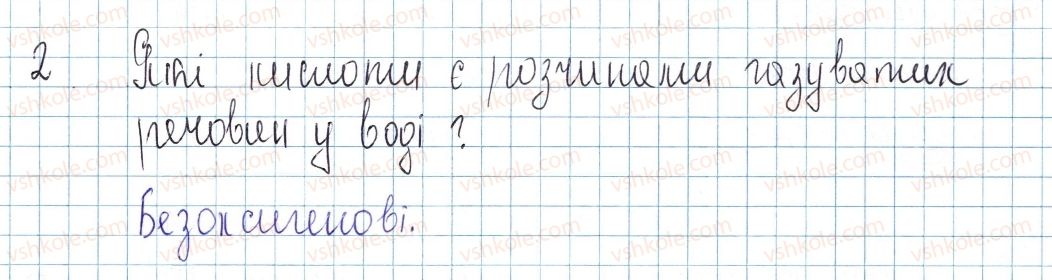 2 Які кислоти є розчинами газуватих
речовин у воді?
Безоксигенові.